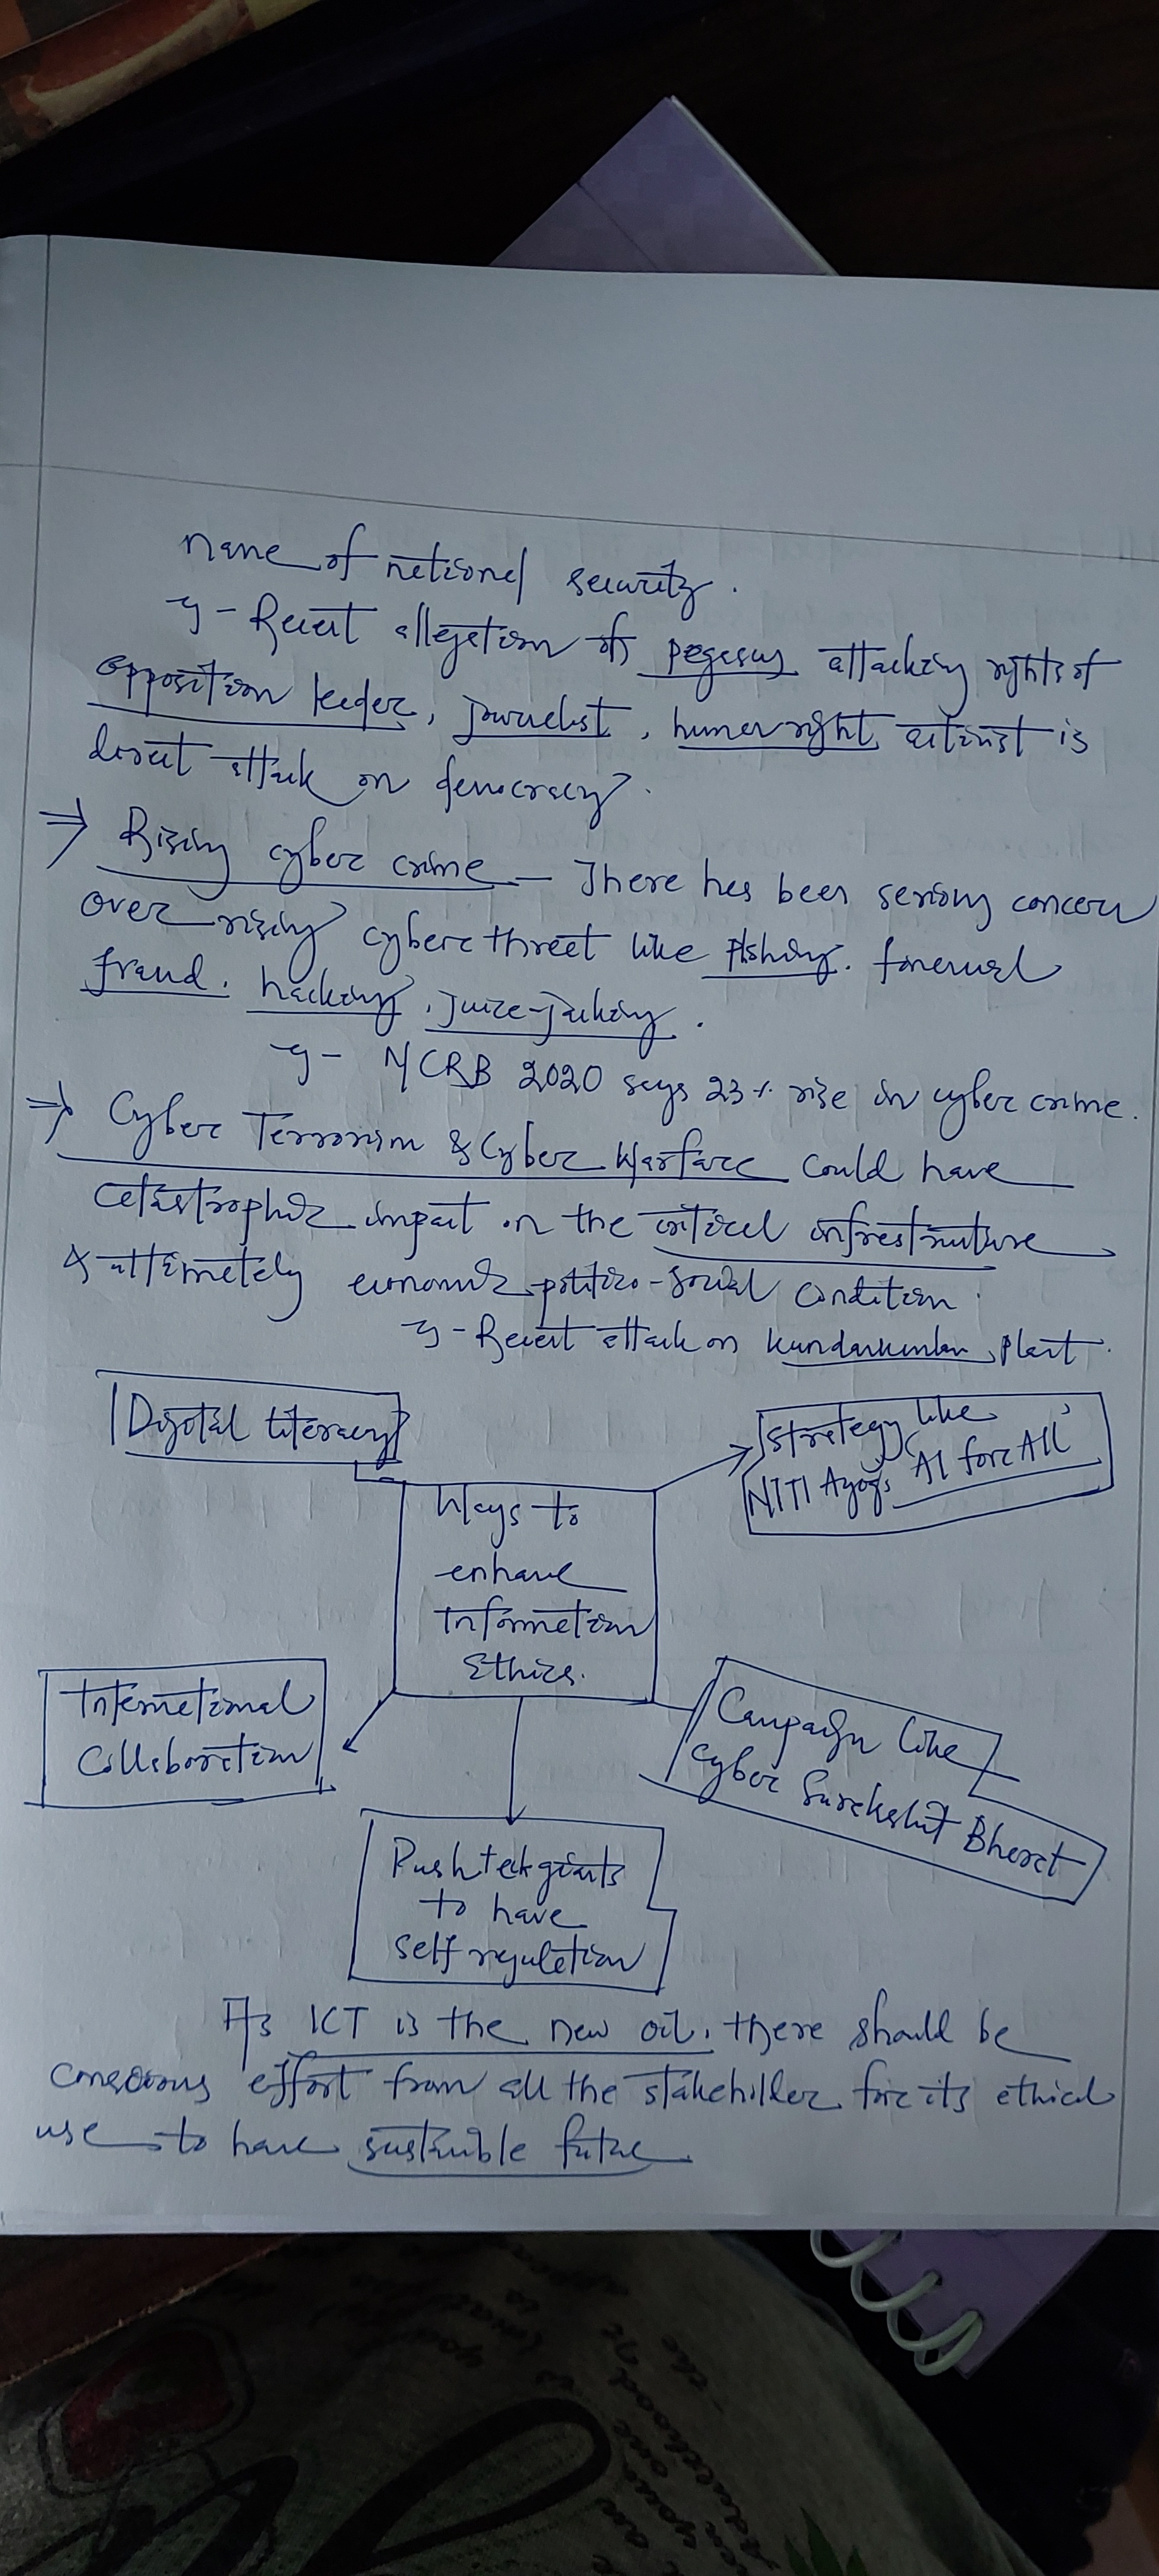 name of national security.
eg - Recent allegation of pegasus attacking rights of
opposition leader, journalist, human right activist is
direct attack on democracy.
⇒ Rising cyber crime - There has been serious concern
over rising cyber threat like Phishing, financial
fraud, hacking, Juice-jacking.
eg - NCRB 2020 says 23% rise in cyber crime.
⇒ Cyber Terrorism & Cyber Warfare could have
catastrophic impact on the critical infrastructure
& ultimately economic politico-social condition.
eg - Recent attack on Kundankulam Plant.
Digital literacy
Strategy like
NITI Ayog's 'AI for All'
Ways to
enhance
Information
Ethics.
International
Collaboration
Campaign like
Cyber Surakshit Bharat
Push tech giants
to have
self regulation
As ICT is the new oil, there should be
conscious effort from all the stakeholder for its ethical
use to have sustainble future.